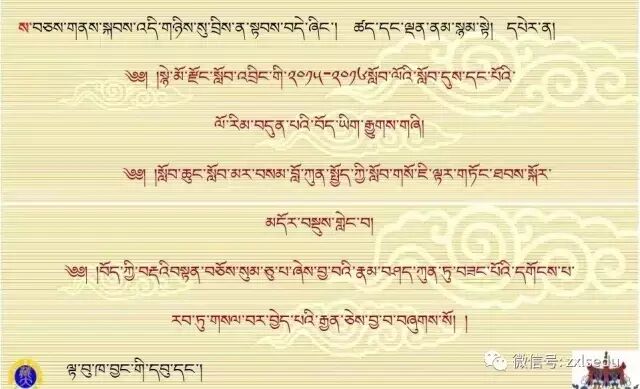 ས་བཅས་གནས་སྐབས་འདི་གཉིས་སུ་བྲིས་ན་སྟབས་བདེ་ཞིང་། ཚད་དང་ལྡན་ནམ་སྙམ་སྟེ། དཔེར་ན།
༄༅། །སྙེ་མོ་རྫོང་སློབ་འབྲིང་གི་༢༠༡༥-༢༠༡༦སློབ་ལོའི་སློབ་དུས་དང་པོའི་
ལོ་རིམ་བདུན་པའི་བོད་ཡིག་རྒྱུགས་གཞི།
༄༅། །སློབ་ཆུང་སློབ་མར་བསམ་བློ་ཀུན་སྤྱོད་ཀྱི་སློབ་གསོ་ཇི་ལྟར་གཏོང་ཐབས་སྐོར་
མདོར་བསྡུས་གླེང་བ།
༄༅། །བོད་ཀྱི་བརྡའི་བསྟན་བཅོས་སུམ་ཅུ་པ་ཞེས་བྱ་བའི་རྣམ་བཤད་ཀུན་ཏུ་བཟང་པོའི་དགོངས་པ་
རབ་ཏུ་གསལ་བར་བྱེད་པའི་རྒྱན་ཅེས་བྱ་བ་བཞུགས་སོ། །
ལྟ་བུ་ཁ་བྱང་གི་དབུ་དང་།
微信号: zxlsedu